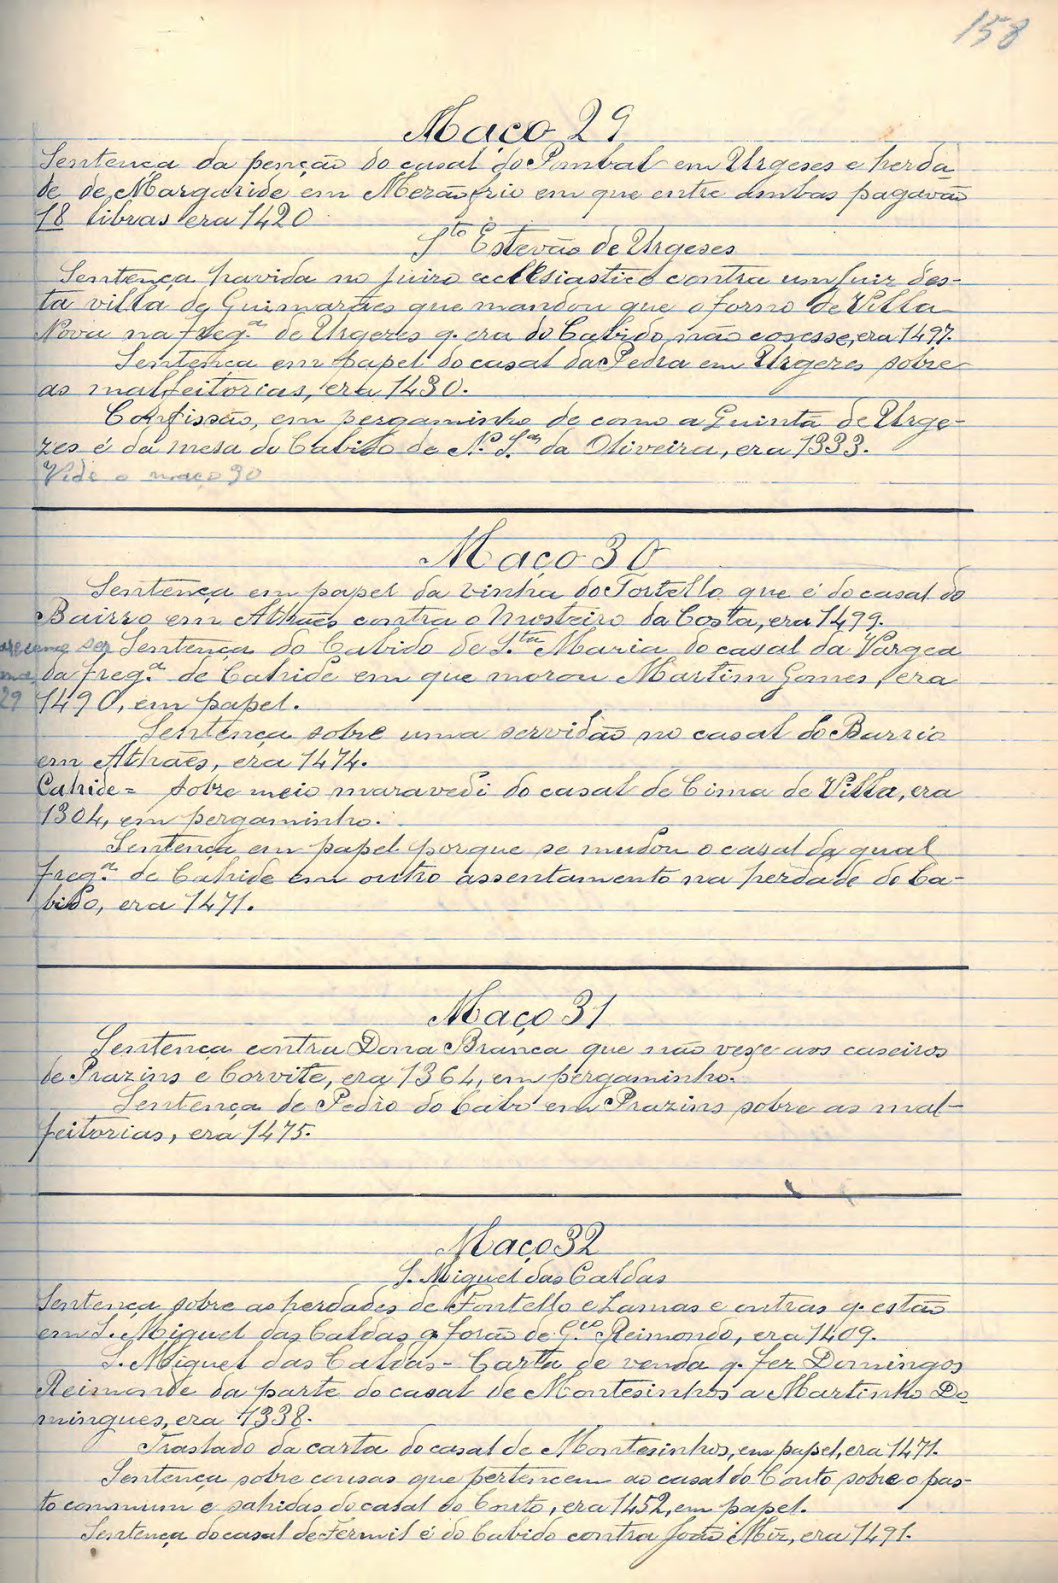 158
Maço 29
Sentença da penção do casal do Pombal em Urgeses e herda
de de Margaride em Mezãofrio em que entre ambas pagavão
18 libras era 1420
Sto Estevão de Urgeses
Sentença havida no juizo ecclesiastico contra um Juiz des-
ta villa de Guimarães que mandou que o forno de Villa
Nova na freg.a de Urgezes q. era do Cabido, não cosesse, era 1497.
Sentença em papel do casal da Pedra em Urgezes sobre
as malfeitorias, era 1430.
Confissão, em pergaminho de como a Quinta de Urge-
zes é da mesa do Cabido de N.a S.ra da Oliveira, era 1333.
Vide o maço 30
Maço 30
Sentença em papel da vinha do Tortello que é do casal do
Bairro em Athães contra o Mosteiro da Costa, era 1499.
Sentença do Cabido de S.ta Maria do casal da Vargea
da freg.a de Cahide em que morou Martim Gomes, era
29 1490, em papel.
Sentença sobre uma servidão no casal do Barrio
em Athães, era 1474.
Cahide = sobre meio maravedi do casal de Cima de Villa, era
1304, em pergaminho.
Sentença em papel porque se mudou o casal da qual
freg.a de Cahide em outro assentamento na herdade do Ca-
bido, era 1471.
Maço 31
Sentença contra Dona Branca que não vexe aos caseiros
de Prazins e Corvite, era 1364, em pergaminho.
Sentença de Pedro do Cabo em Prazins sobre as mal-
feitorias, era 1475.
Maço 32
S. Miguel das Caldas
Sentença sobre as herdades de Fontello e Lamas e outras q. estão
em S. Miguel das Caldas q. forão de G.co Reimondo, era 1409.
S. Miguel das Caldas - Carta de venda q. fez Domingos
Reimonde da parte do casal de Montesinhos a Martinho Do
mingues, era 1338.
Traslado da carta do casal de Montesinhos, em papel, era 1471.
Sentença sobre cousas que pertencem ao casal do Couto sobre o pas-
to commum e sahidas do casal do Couto, era 1452, em papel.
Sentença do casal de Fermil é do Cabido contra João Miz, era 1491.